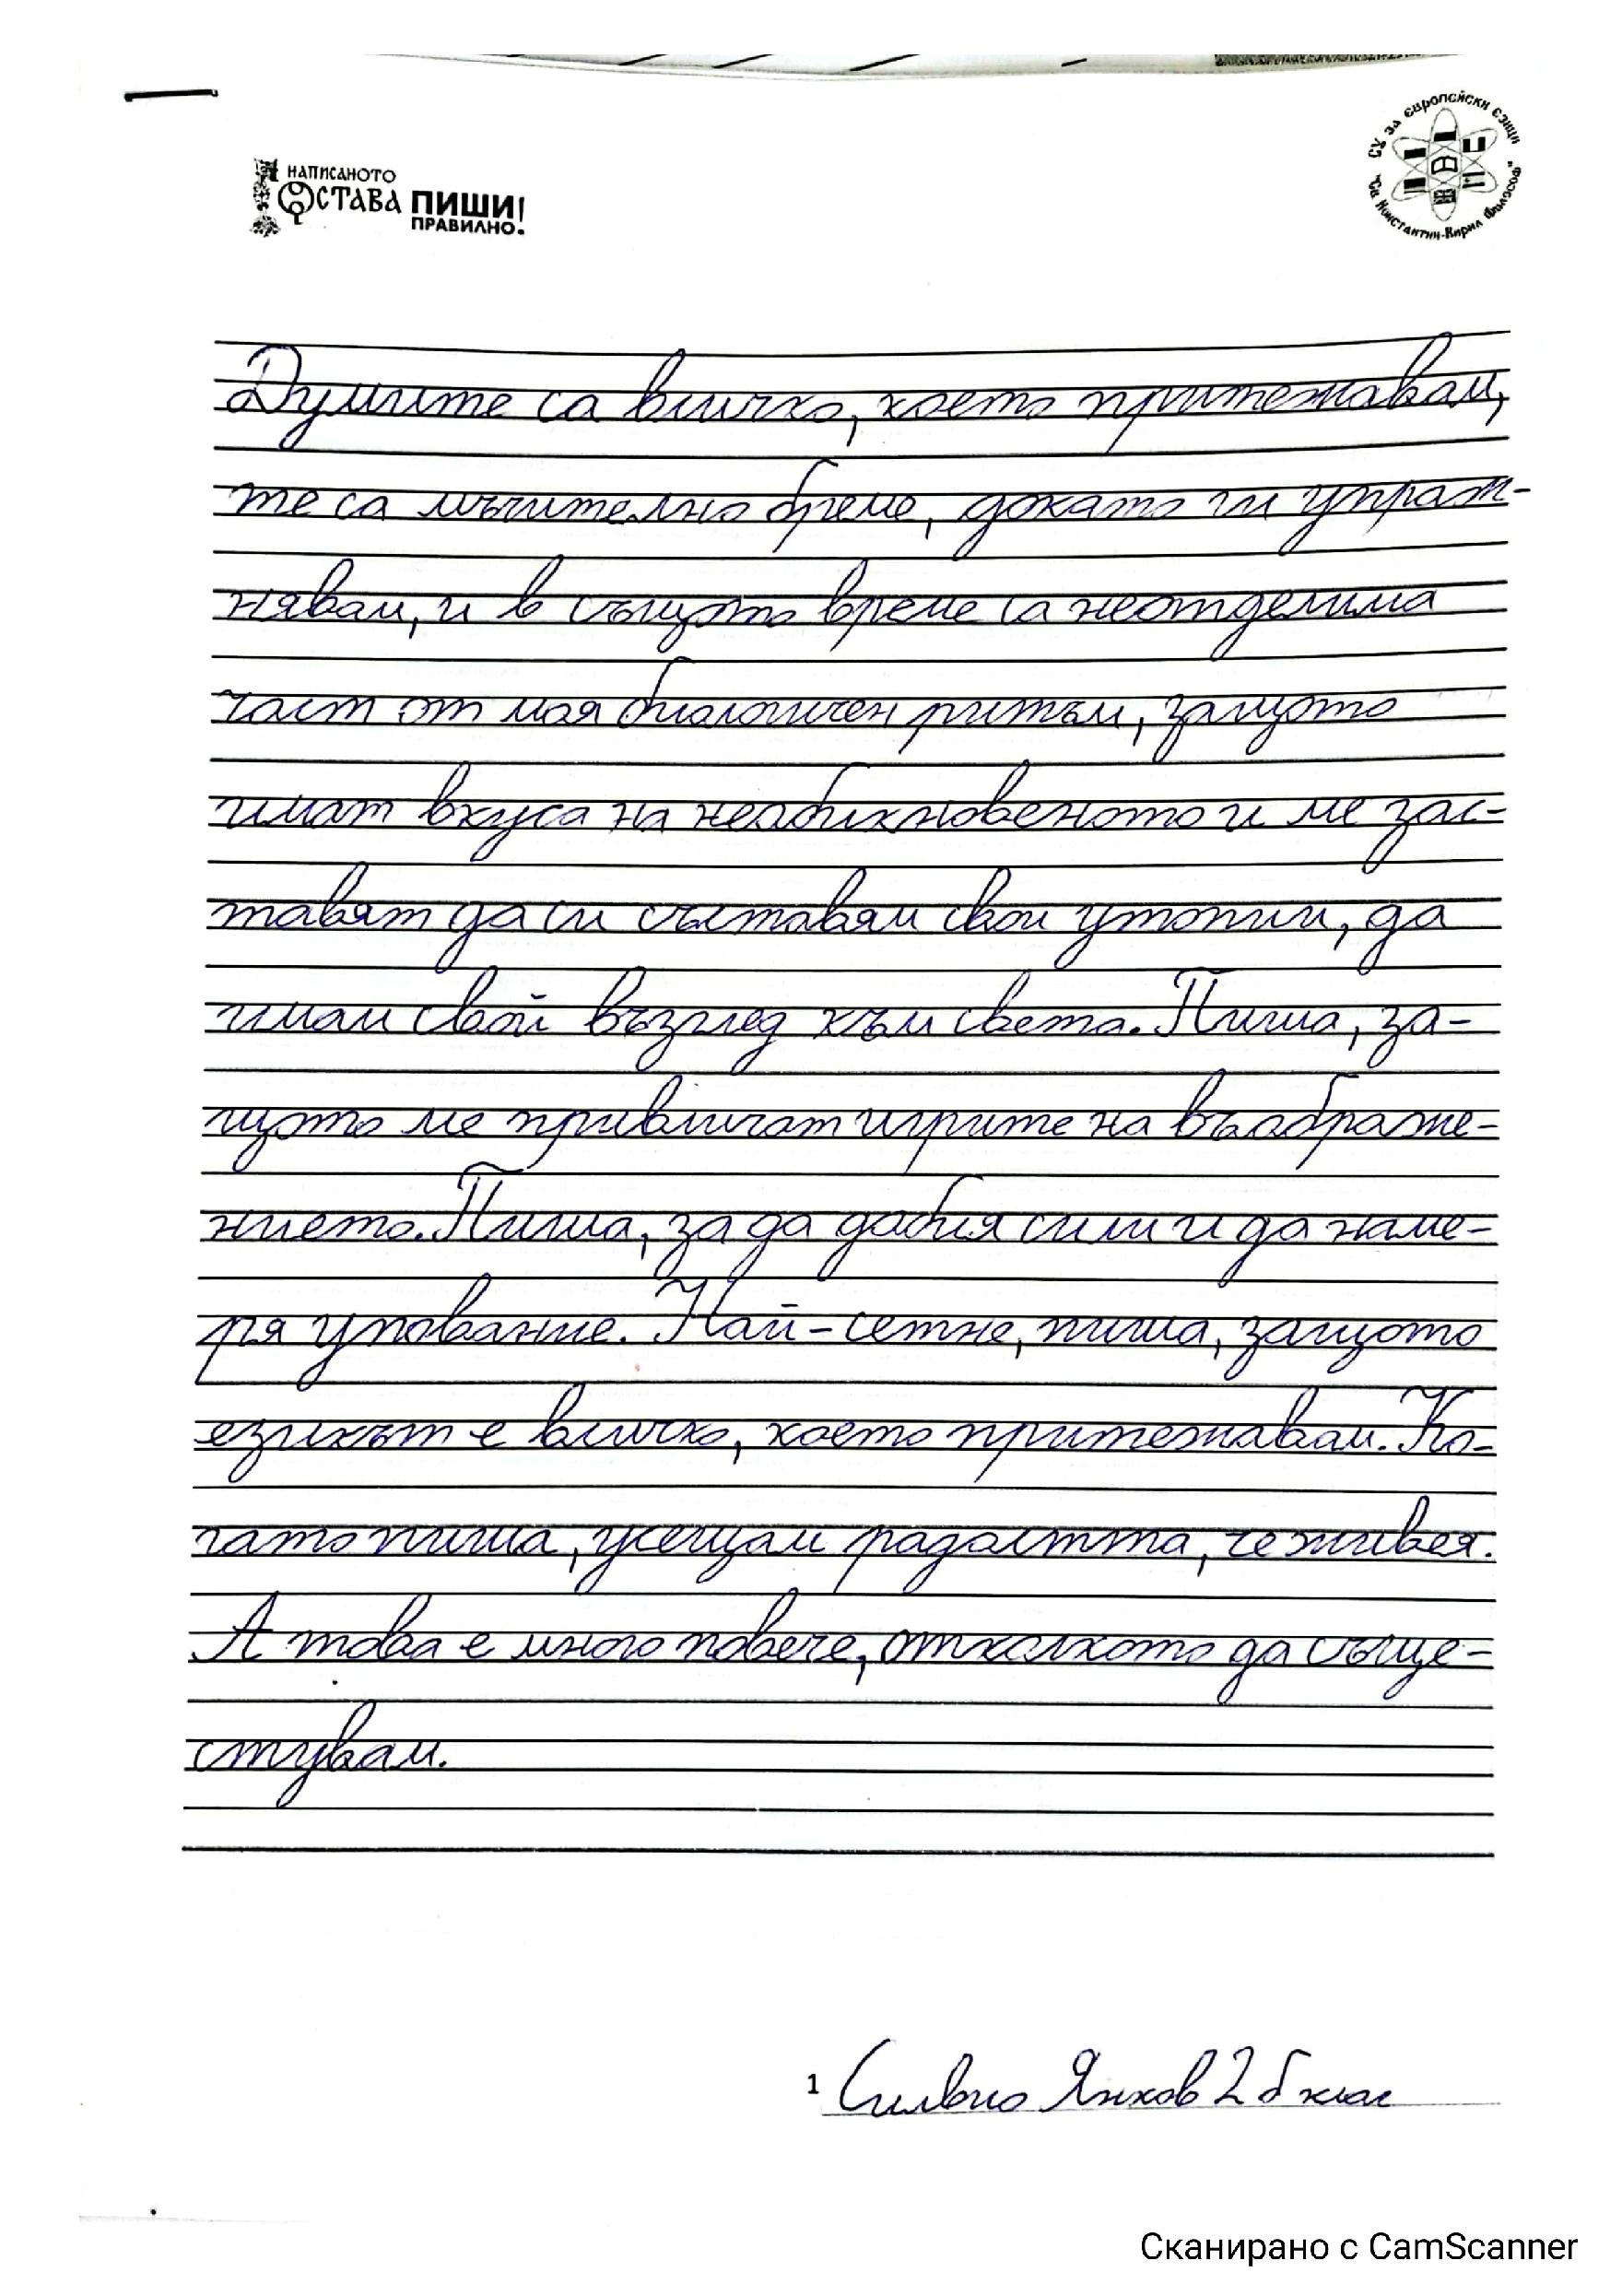 НАПИСАНОТО
ОСТАВА ПИШИ
ПРАВИЛНО!
СУ за европейски езици
"Св. Константин-Кирил Философ"
Думите са всичко, което притежавам,
те са мъчително бреме, докато ги упраж-
нявам, и в същото време са неотделима
част от моя биологичен ритъм, защото
имат вкуса на необикновеното и ме зас-
тавят да си съставям свои утопии, да
имам свой възглед към света. Пиша, за-
щото ме привличат игрите на въображе-
нието. Пиша, за да добия сили и да наме-
ря упование. Най-сетне, пиша, защото
езикът е всичко, което притежавам. Ко-
гато пиша, усещам радостта, че живея.
А това е много повече, отколкото да съще-
ствувам.
1 Силвио Янков 2 б клас
Сканирано с CamScanner